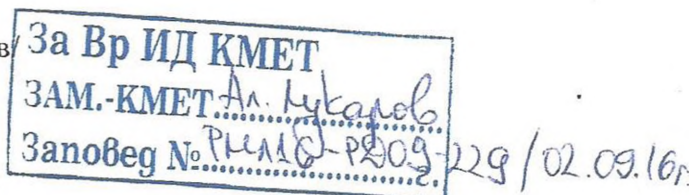 в/ За Вр ИД КМЕТ
ЗАМ.-КМЕТ Ал. Цукаров
Заповед № РМЛ16-РД09-229/02.09.16г.
г.